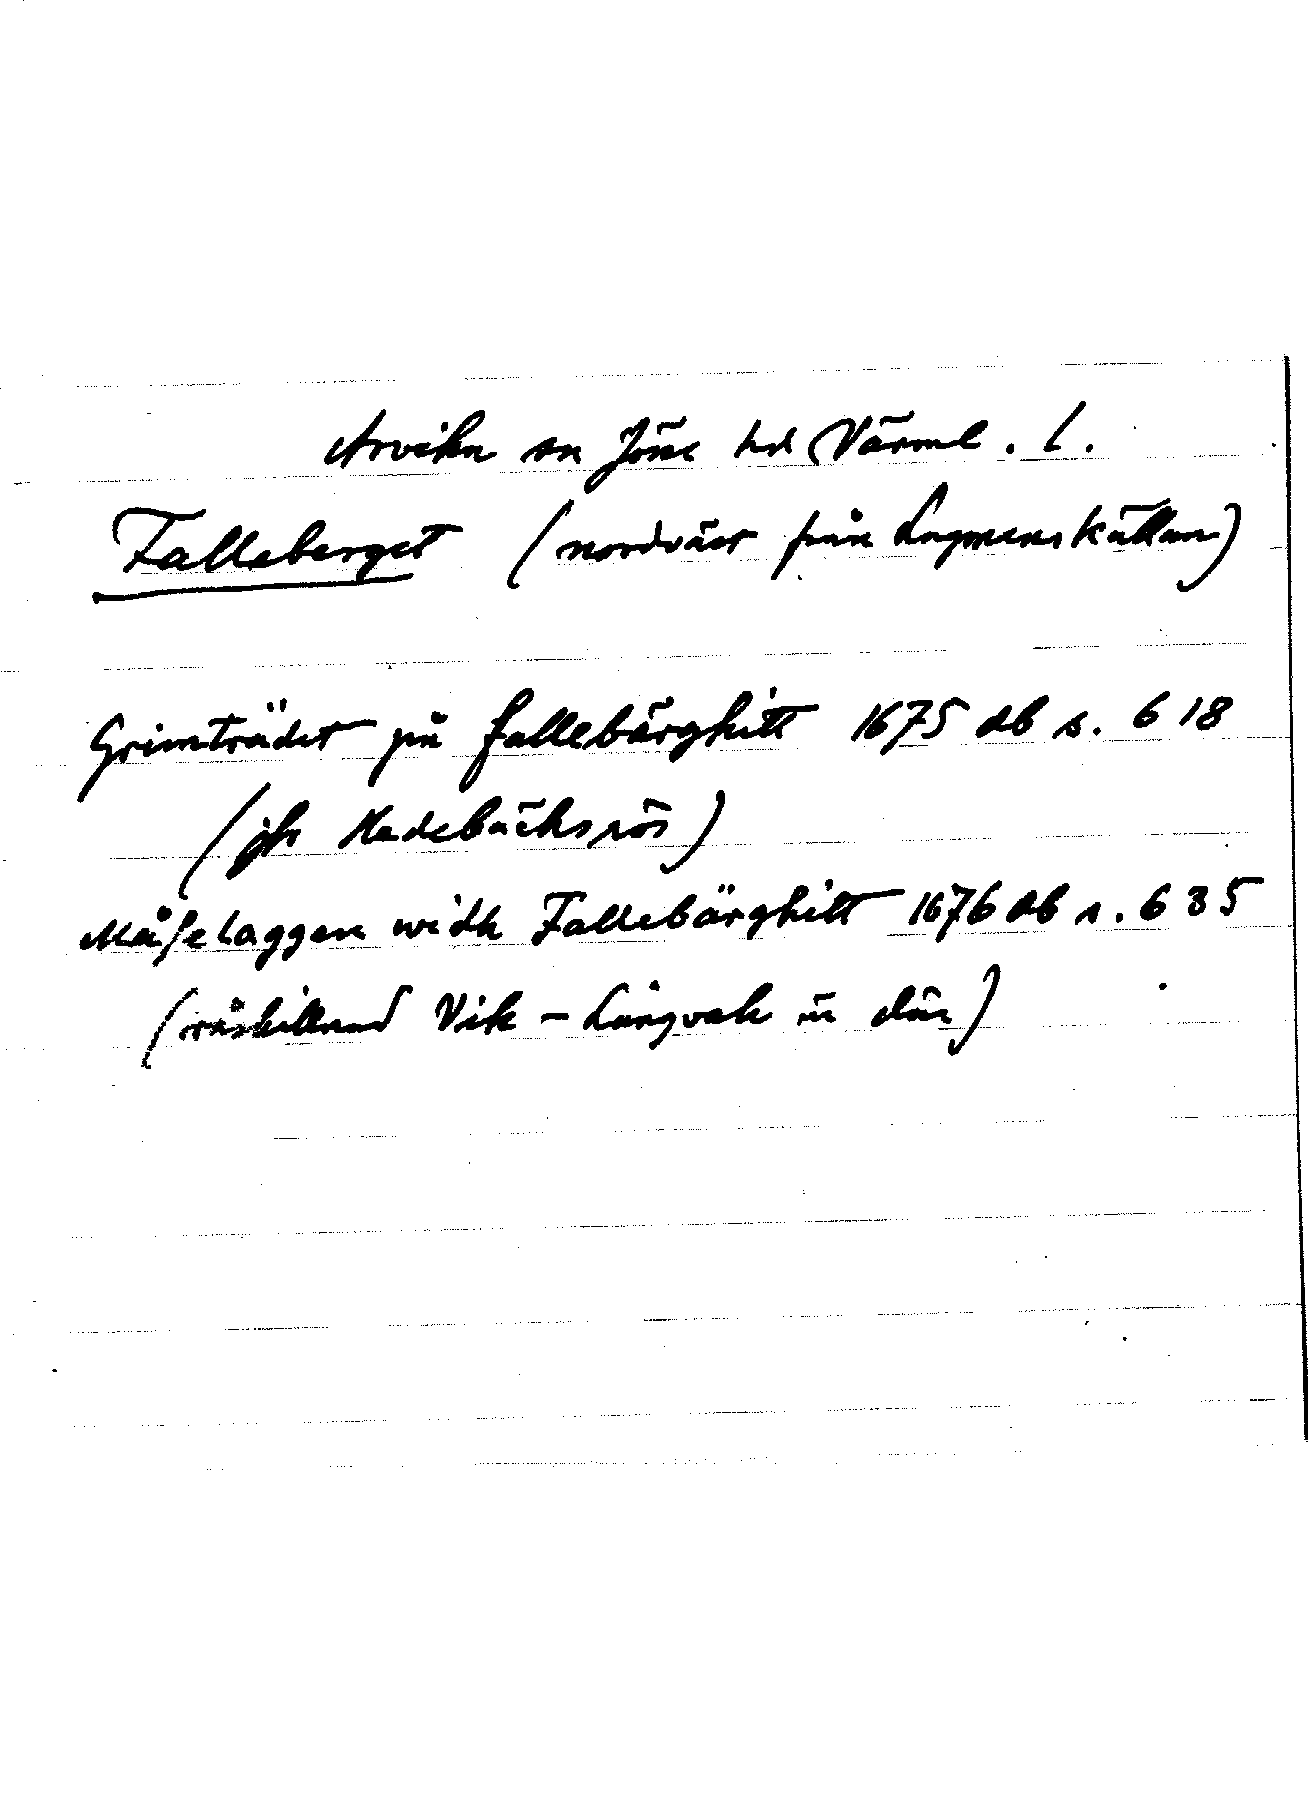 Arvika sn Jösse hd Värml. l.
Falleberget (nordväst från Lagmanskällan)
Grimträdet på fallebärghitt 1675 db s. 618
(jfr Kadebäcksrös)
Måsselaggen widh Fallebärghitt 1676 db s. 635
(råskillnad Vik - Långvak är där)